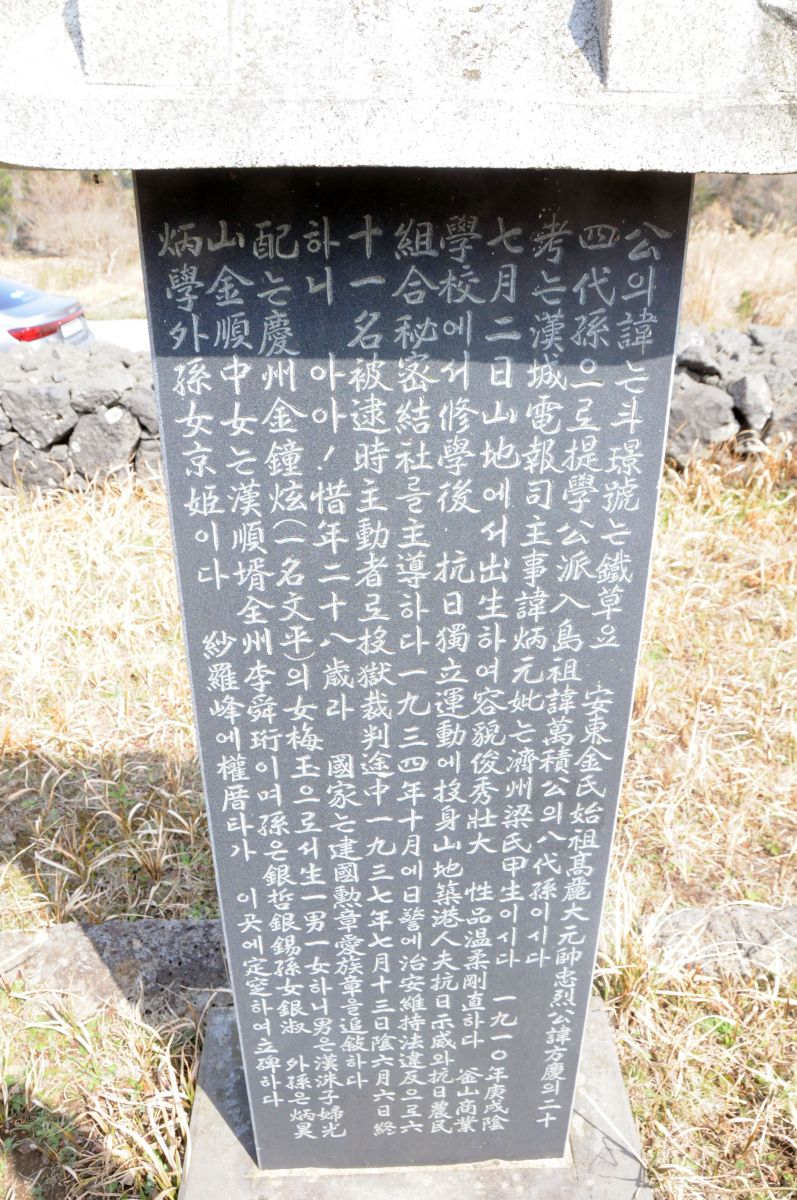 公의諱는斗璟號는鐵草요 安東金氏始祖高麗大元帥忠烈公諱方慶의二十
四代孫으로提學公派入島祖諱萬積公의八代孫이시다
考는漢城電報司主事諱炳元妣는濟州梁氏甲生이시다 一九一〇年庚戌陰
七月二日山地에서出生하여容貌俊秀壯大 性品温柔剛直하다 釜山商業
學校에서修學後 抗日獨立運動에投身山地築港人夫抗日示威와抗日農民
組合秘密結社를主導하다一九三四年十月에日警에治安維持法違反으로六
十一名被逮時主動者로投獄裁判途中一九三七年七月十三日陰六月六日終
하니 아아!惜年二十八歲라 國家는建國勳章愛族章을追敍하다
配는慶州金鐘炫(一名文平)의女梅玉으로서生一男一女하니男은漢洙子婦光
山金順中女는漢順壻全州李舜珩이며孫은銀哲銀錫孫女銀淑 外孫은炳昊
炳學外孫女京姬이다 紗羅峰에權厝타가 이곳에定窆하여立碑하다